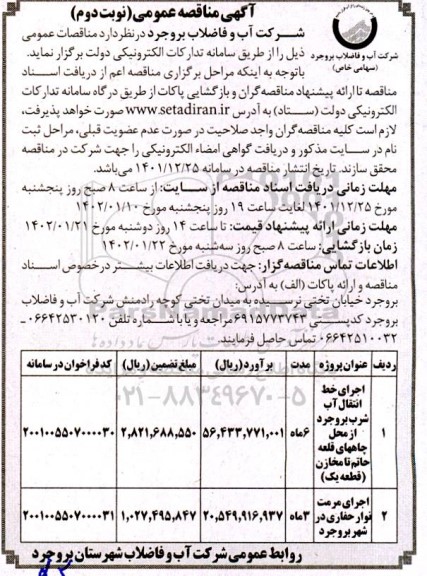 آگهی مناقصه عمومی (نوبت دوم)
شرکت آب و فاضلاب بروجرد
(سهامی خاص)
شرکت آب و فاضلاب بروجرد درنظر دارد مناقصات عمومی
ذیل را از طریق سامانه تدارکات الکترونیکی دولت برگزار نماید.
باتوجه به اینکه مراحل برگزاری مناقصه اعم از دریافت اسناد
مناقصه تا ارائه پیشنهاد مناقصه گران و بازگشایی پاکات از طریق درگاه سامانه تدارکات
الکترونیکی دولت (ستاد) به آدرس www.setadiran.ir صورت خواهد پذیرفت،
لازم است کلیه مناقصه گران واجد صلاحیت در صورت عدم عضویت قبلی، مراحل ثبت
نام در سایت مذکور و دریافت گواهی امضاء الکترونیکی را جهت شرکت در مناقصه
محقق سازند. تاریخ انتشار مناقصه در سامانه ۱۴۰۱/۱۲/۲۵ می‌باشد.
مهلت زمانی دریافت اسناد مناقصه از سایت: از ساعت ۸ صبح روز پنجشنبه
مورخ ۱۴۰۱/۱۲/۲۵ لغایت ساعت ۱۹ روز پنجشنبه مورخ ۱۴۰۲/۰۱/۱۰
مهلت زمانی ارائه پیشنهاد قیمت: تا ساعت ۱۴ روز دوشنبه مورخ ۱۴۰۲/۰۱/۲۱
زمان بازگشایی: ساعت ۸ صبح روز سه‌شنبه مورخ ۱۴۰۲/۰۱/۲۲
اطلاعات تماس مناقصه گزار: جهت دریافت اطلاعات بیشتر درخصوص اسناد
مناقصه و ارائه پاکات (الف) به آدرس:
بروجرد خیابان تختی نرسیده به میدان تختی کوچه رادمنش شرکت آب و فاضلاب
بروجرد کدپستی ۶۹۱۵۷۷۳۷۴۳ مراجعه و یا با شماره تلفن ۰۶۶۴۲۵۳۰۱۲۰-
۰۶۶۴۲۵۱۰۰۳۲ تماس حاصل فرمایند.
ردیف عنوان پروژه مدت برآورد (ریال) مبلغ تضمین (ریال) کد فراخوان در سامانه
۱ اجرای خط انتقال آب شرب بروجرد از محل چاههای قلعه حاتم تا مخازن (قطعه یک) ۶ماه ۵۶,۴۳۳,۷۷۱,۰۰۱ ۲,۸۲۱,۶۸۸,۵۵۰ ۲۰۰۱۰۰۵۵۰۷۰۰۰۰۳۰
۲ اجرای مرمت نوار حفاری در شهر بروجرد ۳ماه ۲۰,۵۴۹,۹۱۶,۹۳۷ ۱,۰۲۷,۴۹۵,۸۴۷ ۲۰۰۱۰۰۵۵۰۷۰۰۰۰۳۱
روابط عمومی شرکت آب و فاضلاب شهرستان بروجرد
۰۲۱-۸۸۳۴۹۶۷۰-۵